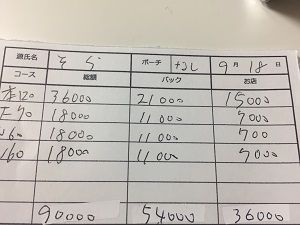 源氏名 そら ポーチ なし 9月18日
コース 総額 バック お店
本120 36000 21000 15000
18000 11000 7000
60 18000 11000 700
60 18000 11000 7000
90000 54000 36000